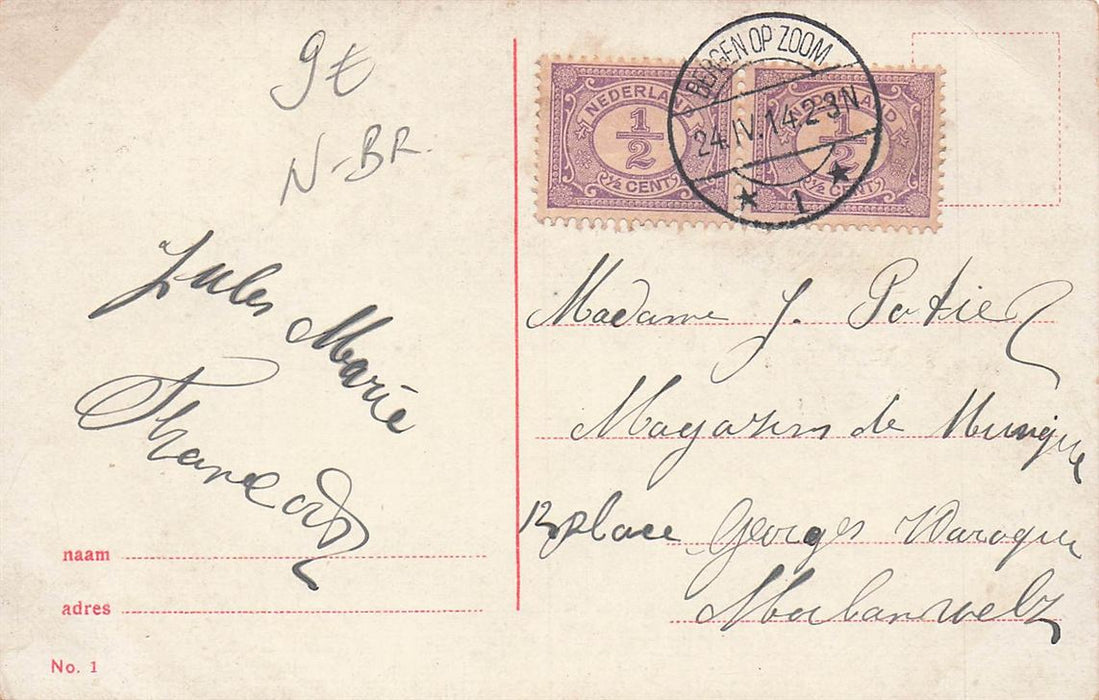 9 €
N-BR.
Jules Marie
naam
adres
No. 1
NEDERLAND
1/2
½ CENT
NEDERLAND
1/2
½ CENT
BERGEN OP ZOOM
24.IV.14.2-3N
1
Madame J. Potier
Magasin de Musique
12 place Georges Warocqué
Morlanwelz